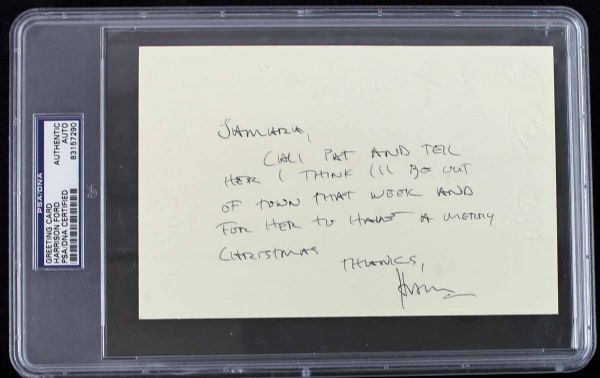 PSA/DNA
GREETING CARD
HARRISON FORD
PSA/DNA CERTIFIED
AUTHENTIC
AUTO
83157290
TAMARA,
CALL PAT AND TELL
HER I THINK I'LL BE OUT
OF TOWN THAT WEEK AND
FOR HER TO HAVE A MERRY
CHRISTMAS
THANKS,